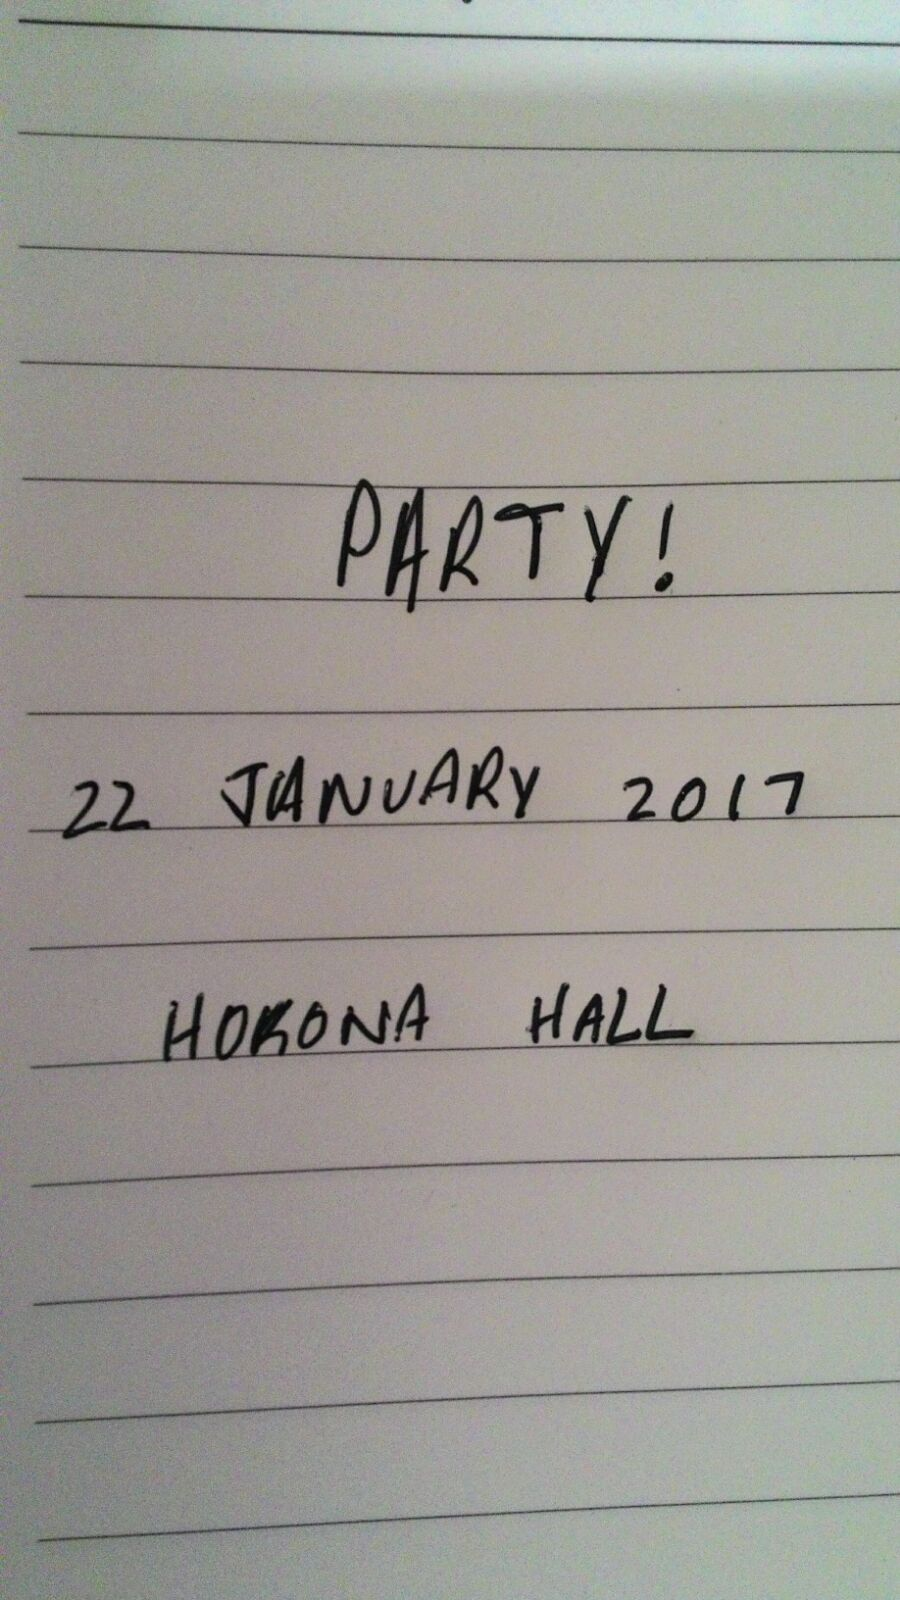 PARTY!
22 JANUARY 2017
HORONA HALL